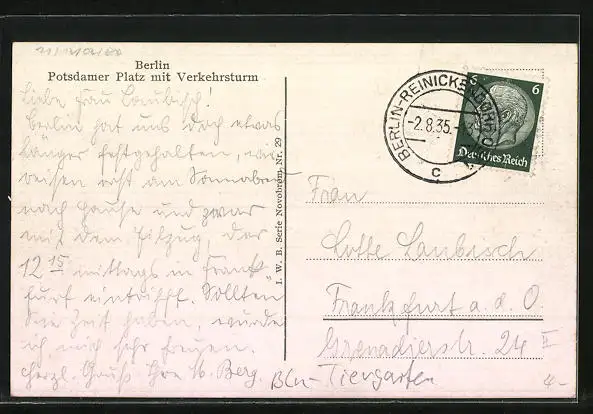 Berlin
Potsdamer Platz mit Verkehrsturm
Liebe Frau Laubisch!
Berlin hat uns doch etwas
länger festgehalten, wir
reisen erst am Sonnabend
nach Hause und zwar
mit dem Eilzug, der
12 15 mittags in Frank-
furt eintrifft. Sollten
Sie Zeit haben, würde
ich mich sehr freuen.
Herzl. Gruß Ihre M. Berg.
I. W. B. Serie Novobrom, Nr. 29
BERLIN-REINICKENDORF
-2.8.35.
C
6 6
Deutsches Reich
Frau
Lotte Laubisch
Frankfurt a. d. O.
Grenadierstr. 24 II
Bln-Tiergarten
4.-